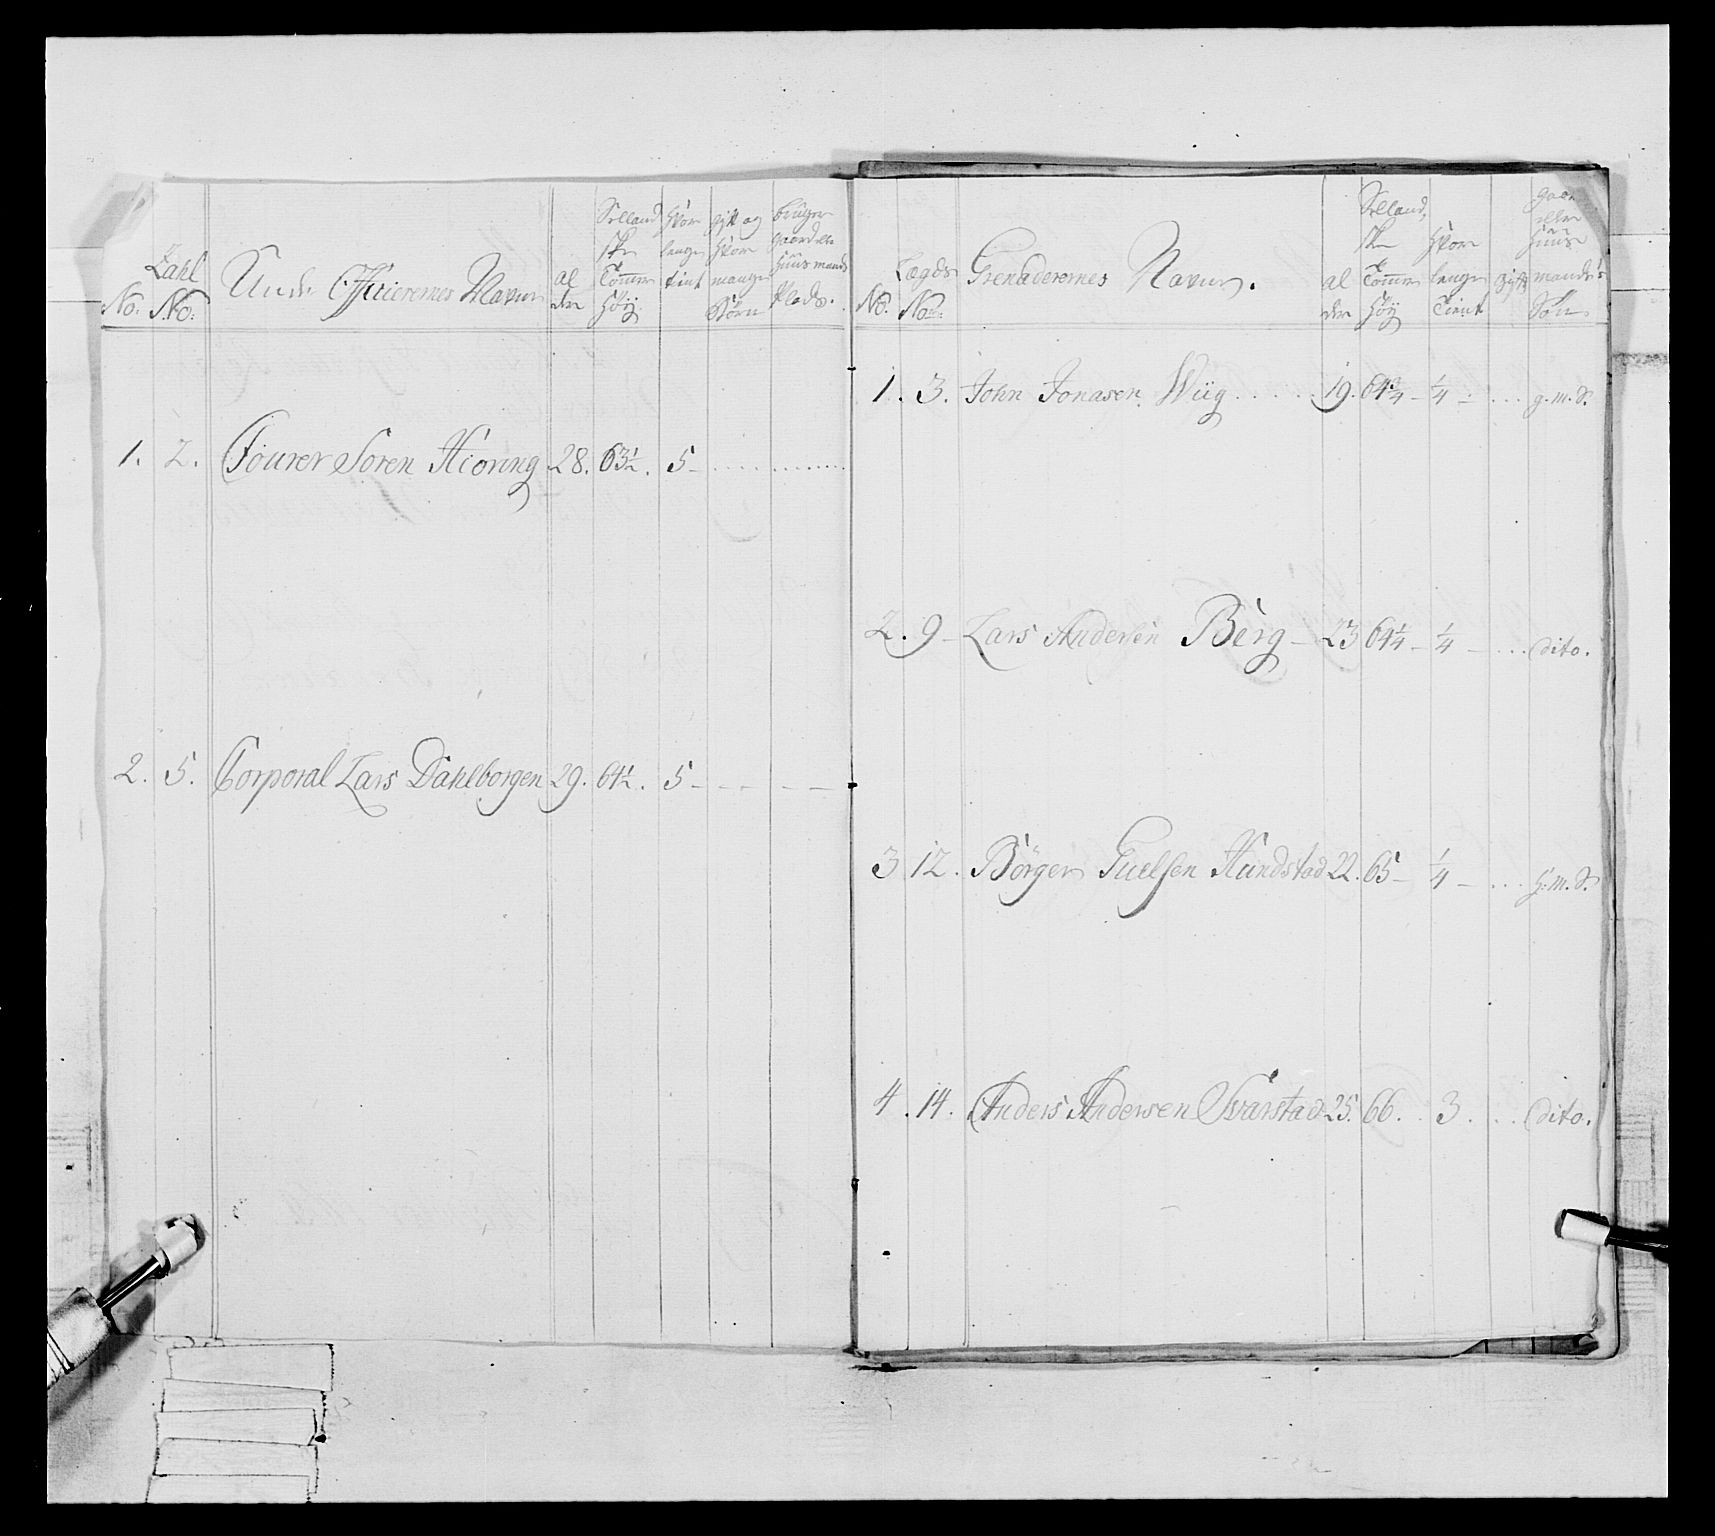 No. Zahl No. Under Officierernes Navne al der Sellandske Tommer Høy Hvor lenge tient gift og Hvor mange Børn bruger gaard elle Huusmands Plads.
1. 2. Fourer Søren Hioring 28. 63½. 5 –
2. 5. Corporal Lars Dahlborgen 29. 64½. 5 –
No. Lægds No. Grenaderernes Navne. al der Sellandske Tommer Høy Hvor lenge Tient gift gaard eller Huus mands Søn.
1. 3. John Jonasen Wiig 19. 64¾ – ¼ – g. m. S.
2. 9 – Lars Andersen Berg – 23 64¼ – ¼ – dito.
3 12. Börger Guelsen Hundstad 22. 65 – ¼ – H. m. S.
4. 14. Anders Andersen Svarstad 25. 66. 3. dito.